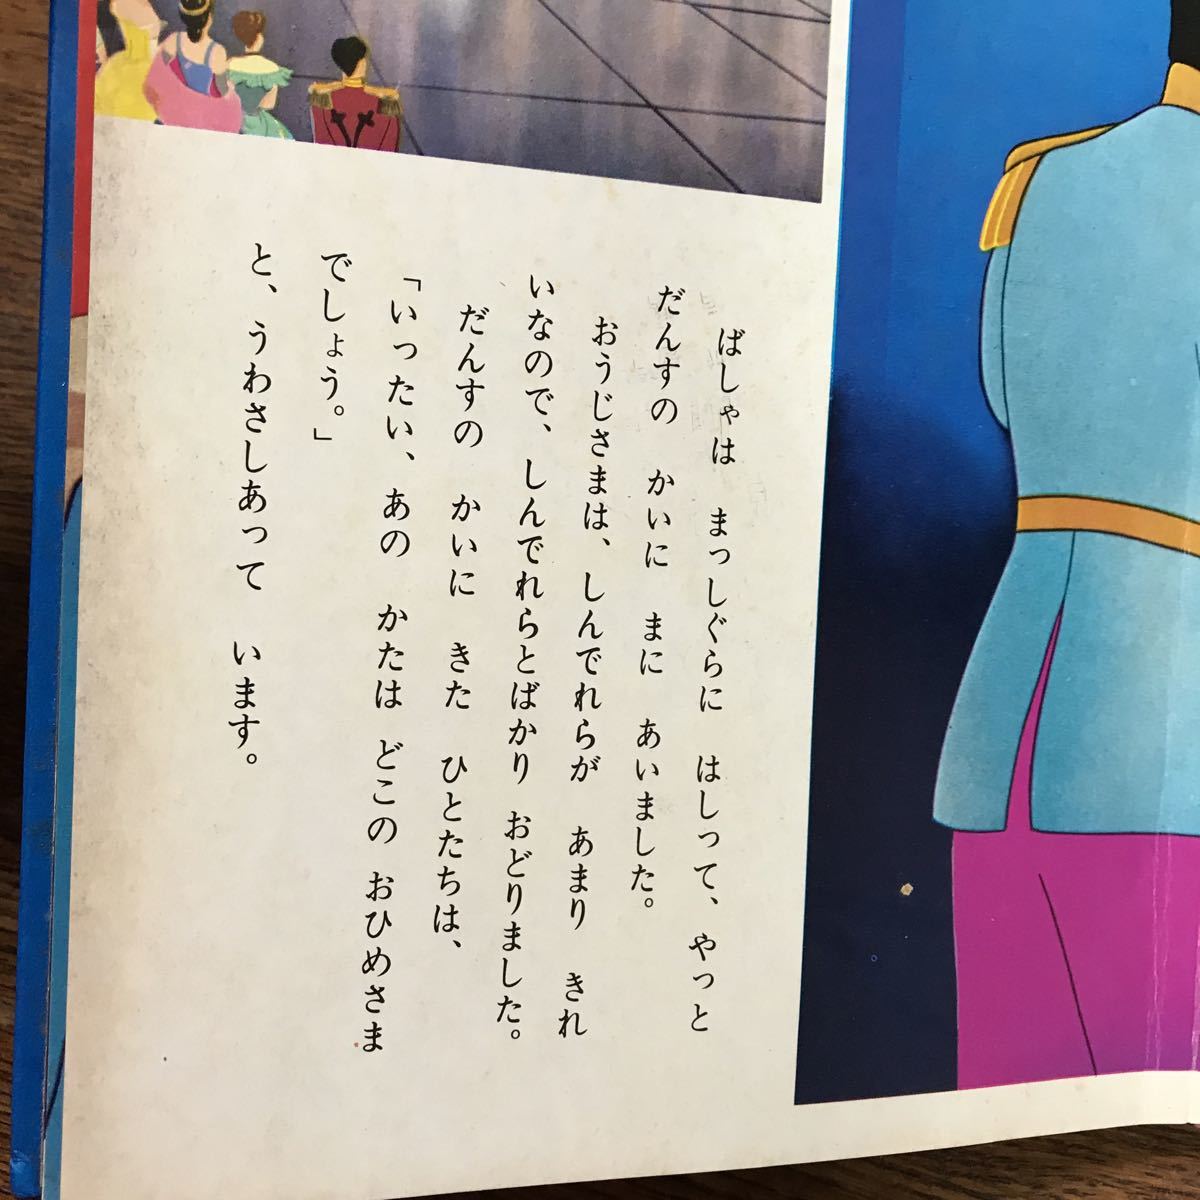 ばしゃは まっしぐらに はしって、やっと
だんすの かいに まに あいました。
おうじさまは、しんでれらが あまり きれ
いなので、しんでれらとばかり おどりました。
だんすの かいに きた ひとたちは、
「いったい、あの かたは どこの おひめさま
でしょう。」
と、うわさしあって います。